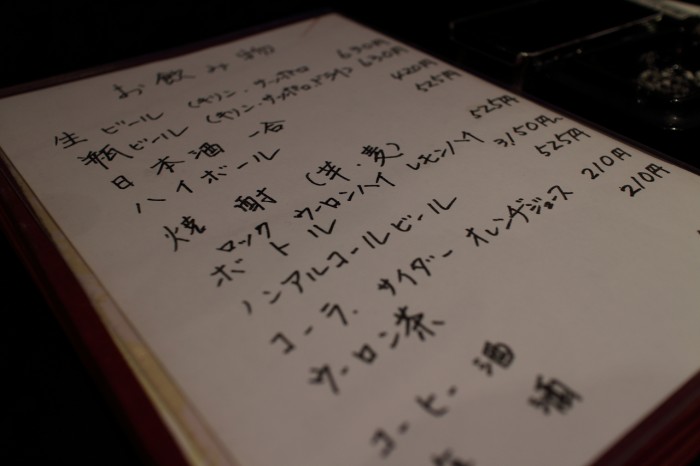 お飲み物
生ビール (キリン・サッポロ 630円
瓶ビール (キリン・サッポロ・ 630円
日本酒 一合 420円
ハイボール 525円
焼酎 (芋・麦)
ロック ウーロンハイ レモンハイ 525円
ボトル 3,150円
ノンアルコールビール 525円
コーラ. サイダー オレンヂジュース 210円
ウーロン茶 210円
コーヒー酒
酒